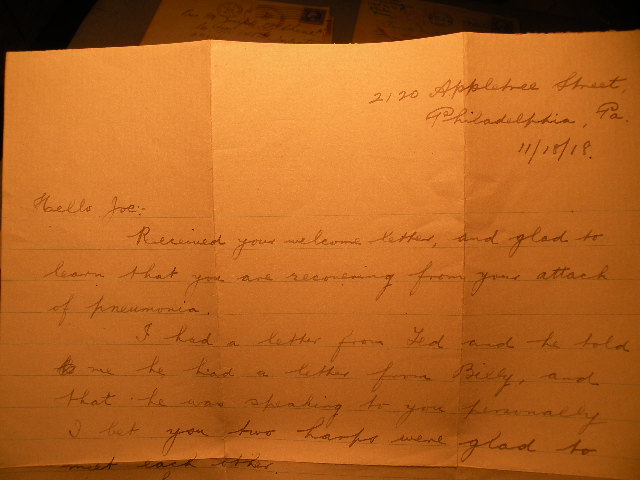 2120 Appletree Street,
Philadelphia, Pa.
11/18/18.
Hello Joe:-
Received your welcome letter, and glad to
learn that you are recovering from your attack
of pneumonia.
I had a letter from Ted and he told
me he had a letter from Billy, and
that he was speaking to you personally
I bet you two harps were glad to
meet each other.